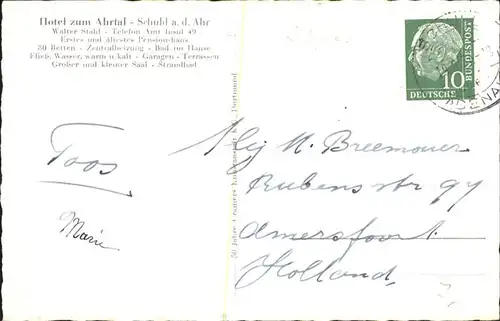 Hotel zum Ahrtal - Schuld a. d. Ahr
Walter Stahl - Telefon Amt Insul 49
Erstes und ältestes Pensionshaus
30 Betten - Zentralheizung - Bad im Hause
Fließ. Wasser, warm u. kalt - Garagen - Terrassen
Großer und kleiner Saal - Strandbad
Toos
Marie
50 Jahre Cramers Kunstanstalt KG., Dortmund
10
DEUTSCHE
BUNDESPOST
ADENAU
M. Breemouer
Rubens str 97
Amersfoort
Holland